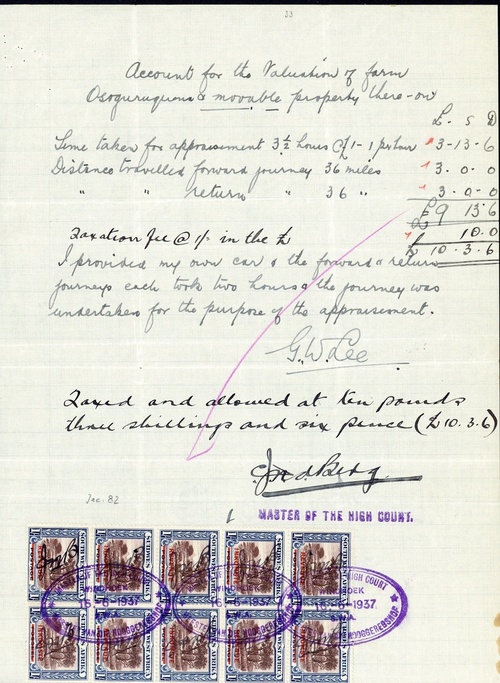 33
Account for the Valuation of farm
Osoguruquona & movable property there-on
£ - S D
Time taken for appraisement 3½ hours @ £1-1 per hour 3-13-6
Distance travelled forward journey 36 miles 3. 0. 0
" " return " 36 " 3. 0. 0
£9 13 6
Taxation fee @ 1/- in the £ 10.0
£ 10.3.6
I provided my own car & the forward & return
journeys each took two hours & the journey was
undertaken for the purpose of the appraisement.
G.W. Lee
Taxed and allowed at ten pounds
three shillings and six pence (£10.3.6)
MASTER OF THE HIGH COURT.
Jac. 82
SOUTH WEST AFRICA
HIGH COURT
WINDHOEK
16-6-1937
S.W.A.
MEESTER VAN DIE HOOGGEREGSHOF